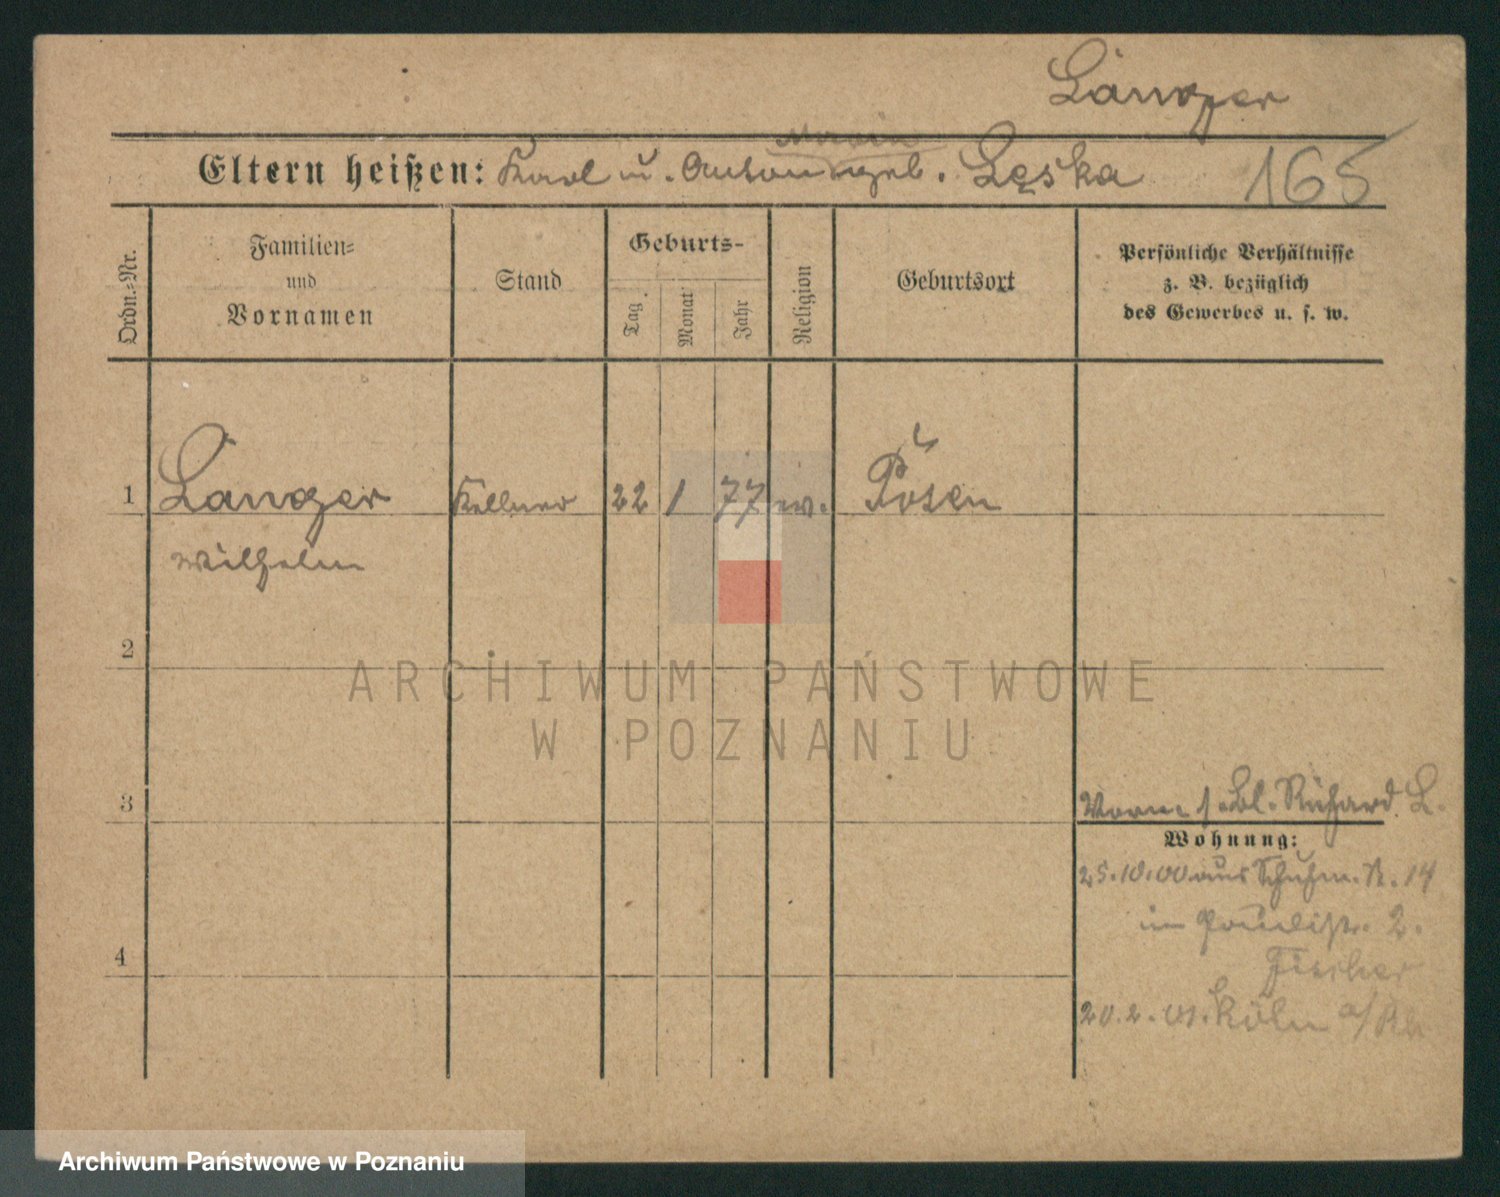 Langer
Eltern heißen: Karl u. Anton geb. Lęska 165
Ordn.-Nr.
Familien-
und
Vornamen
Stand
Geburts-
Tag.
Monat
Jahr
Religion
Geburtsort
Persönliche Verhältnisse
z. B. bezüglich
des Gewerbes u. s. w.
1 Langer Kellner 22 1 77 ev. Posen
Wilhelm
2
ARCHIWUM PAŃSTWOWE
W POZNANIU
3
Vorm. s. Bl. Richard L.
Wohnung:
25.10.00 aus Schuhm. St. 14
im Paulistr. 2.
Fischer
4
20.2.01. Köln a/Rh
Archiwum Państwowe w Poznaniu